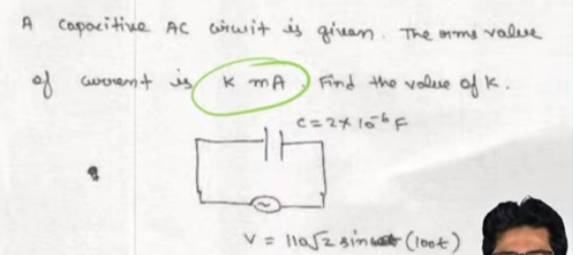 A capacitive AC circuit is given. The rms value
of current is K mA. Find the value of K.
C = 2 × 10⁻⁶ F
~
V = 110√2 sin (100t)